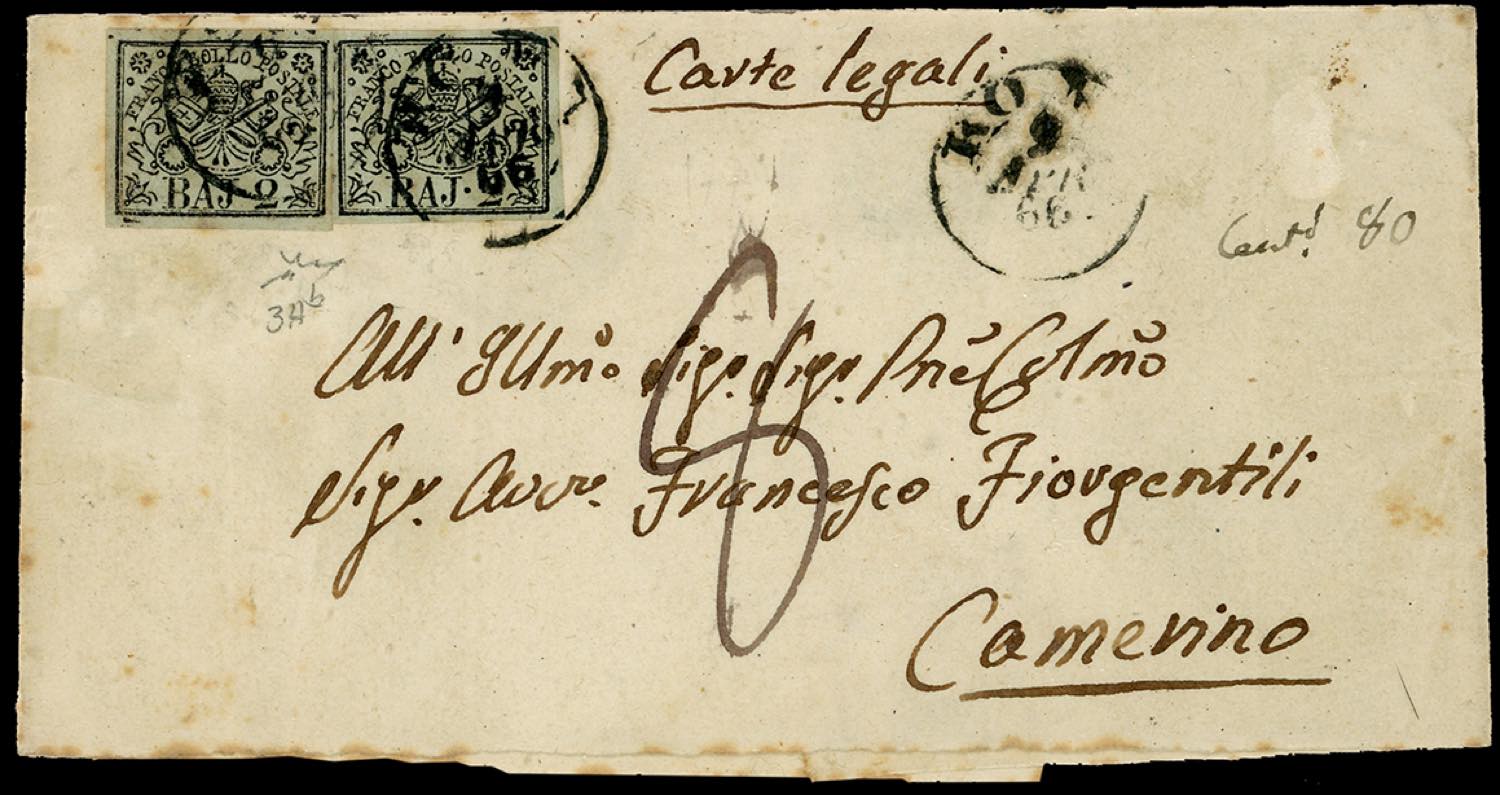 FRANCO BOLLO POSTALE
BAJ. 2
FRANCO BOLLO POSTALE
BAJ. 2
66
Carte legali
RO
9
APR
66
Cent! 80
3Ab
8
All' Illmo Sigr. Sigr. Pne Colmo
Sigr. Avvo. Francesco Fiorgentili
Camerino